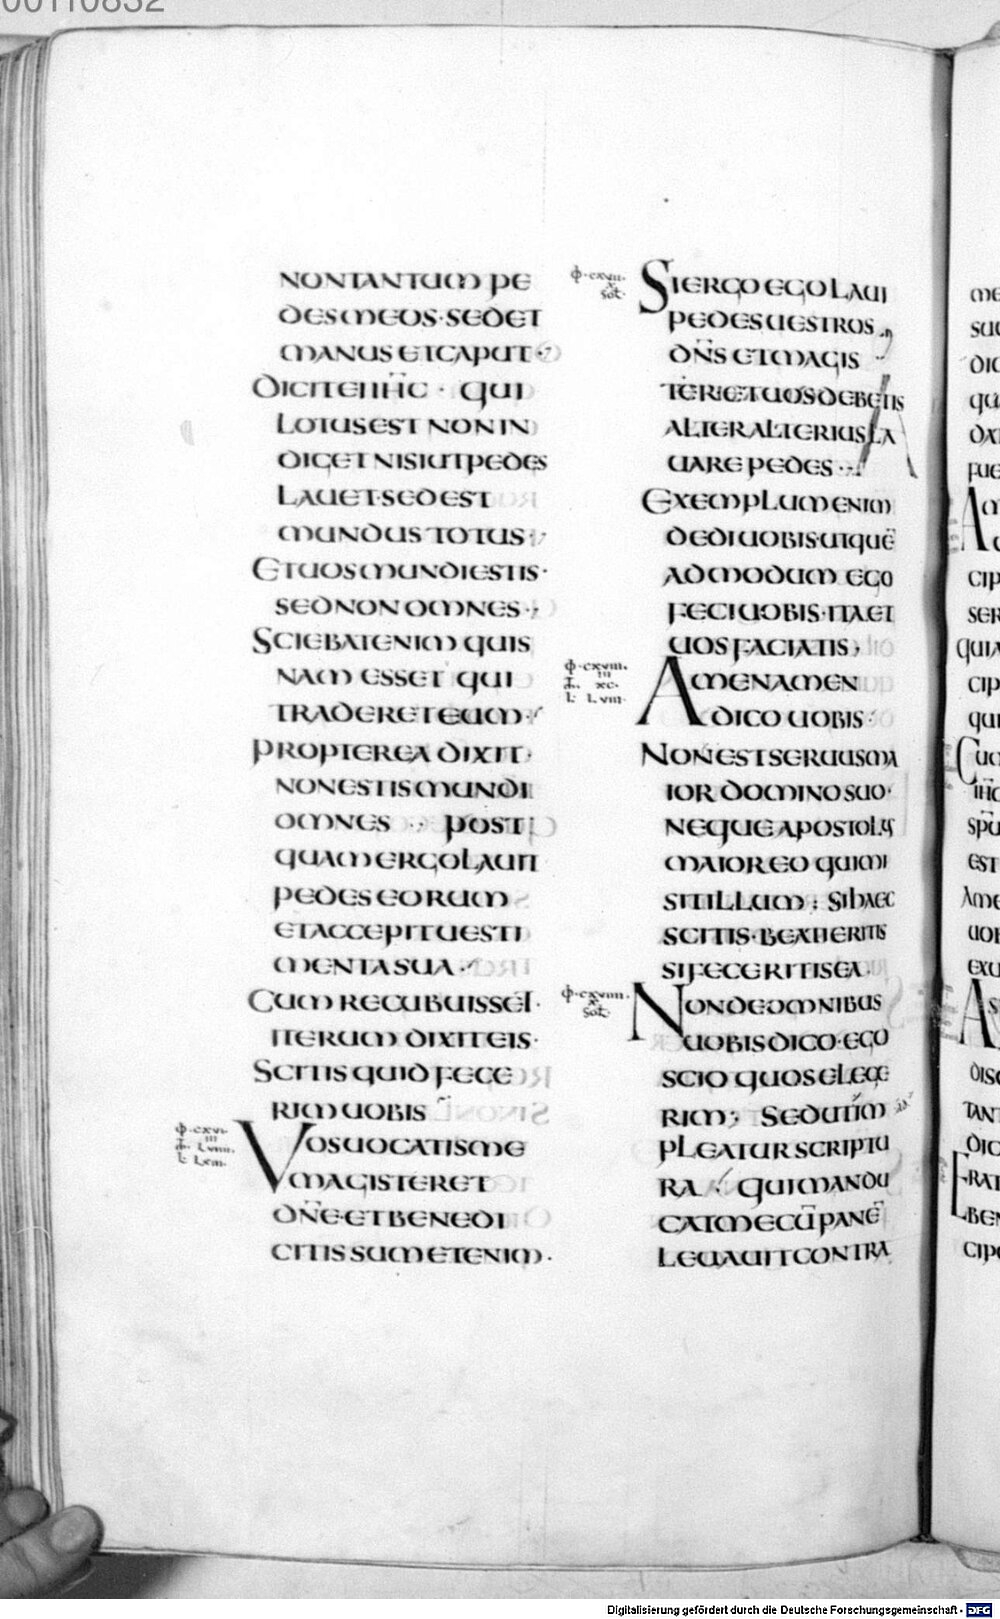 00110832
NONTANTUM PE
DESMEOS·SEDET
MANUS ETCAPUT·
DICITEIIHC· QUI
LOTUSEST NONIN
DIGETNISIUTPEDES
LAUET·SEDEST
MUNDUS TOTUS·
ETUOSMUNDIESTIS·
SEDNONOMNES·
SCIEBATENIM QUIS
NAM ESSET QUI
TRADERETEUM·
PROPTEREA DIXIT·
NONESTISMUNDI
OMNES · POST
QUAMERGOLAUIT
PEDES EORUM
ETACCEPITUESTI
MENTASUA·
CUM RECUBUISSET·
ITERUM DIXITEIS·
SCITIS QUID FECE
RIM UOBIS
φ·CXVI·
III
I· LVIIII·
L· LXIII·
VOSUOCATISME
MAGISTERET
DN̄E·ETBENEDI
CITISSUMETENIM·
φ·CXVII·
X
Sol·
SIERGOEGOLAUI
PEDESUESTROS
DN̄S ETMAGIS
TERETUOSDEBETIS
ALTERALTERIUSLA
UAREPEDES·
EXEMPLUMENIM
DEDIUOBIS·UTQUE
ADMODUM EGO
FECIUOBIS·ITAET
UOSFACIATIS·
φ·CXVIII·
III
I· XC·
L· LVIII·
AMENAMEN
DICO UOBIS·
NONESTSERUUSMA
IOR DOMINOSUO·
NEQUEAPOSTOLUS
MAIOREO QUIMI
SITILLUM· SIHAEC
SCITIS·BEATIERITIS
SIFECERITISEA·
φ·CXVIIII·
X
Sol·
NONDEOMNIBUS
UOBISDICO·EGO
SCIO QUOSELEGE
RIM· SEDUTIM
PLEATURSCRIPTU
RA· QUIMANDU
CATMECŪPANĒ
LEUAUITCONTRA
Digitalisierung gefördert durch die Deutsche Forschungsgemeinschaft - DFG